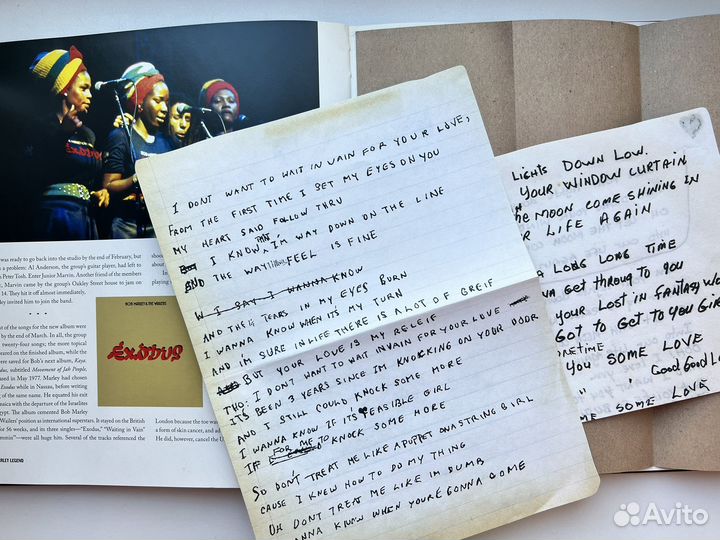 was ready to go back into the studio by the end of February, but
a problem: Al Anderson, the group's guitar player, had left to
Peter Tosh. Enter Junior Marvin. Another friend of the members
, Marvin came by the group's Oakley Street house to jam on
14. They hit it off almost immediately,
ley invited him to join the band.
• • •
of the songs for the new album were
by the end of March. In all, the group
twenty-four songs; the more topical
peared on the finished album, while the
were saved for Bob's next album, Kaya.
Exodus, subtitled Movement of Jah People,
ased in May 1977. Marley had chosen
Exodus while in Nassau, before writing
of the same name. He equated his exit
maica with the departure of the Israelites
gypt. The album cemented Bob Marley
Wailers' position as international superstars. It stayed on the British
for 56 weeks, and its three singles—"Exodus," "Waiting in Vain"
mmin"—were all huge hits. Several of the tracks referenced the
ARLEY LEGEND
shou
playing
BOB MARLEY & THE WAILERS
EXODUS
London because the toe was
a form of skin cancer, and ad
He did, however, cancel the U
I DONT WANT TO WAIT IN VAIN FOR YOUR LOVE,
FROM THE FIRST TIME I SET MY EYES ON YOU
MY HEART SAID FOLLOW THRU
I KNOW THAT I'M WAY DOWN ON THE LINE
AND THE WAY I FEEL IS FINE
W I SAY I WANNA KNOW
AND THE TEARS IN MY EYES BURN
I WANNA KNOW WHEN ITS MY TURN
AND I'M SURE IN LIFE THERE IS A LOT OF GREIF
BUT YOUR LOVE IS MY RELEIF
THO: I DONT WANT TO WAIT IN VAIN FOR YOUR LOVE
ITS BEEN 3 YEARS SINCE I'M KNOCKING ON YOUR DOOR
AND I STILL COULD KNOCK SOME MORE
I WANNA KNOW IF IT'S FEASIBLE GIRL
IF FOR ME TO KNOCK SOME MORE
SO DON'T TREAT ME LIKE A PUPPET ON A STRING GIRL
CAUSE I KNEW HOW TO DO MY THING
OH DONT TREAT ME LIKE IM DUMB
ANNA KNOW WHEN YOURE GONNA COME
LIGHTS DOWN LOW.
YOUR WINDOW CURTAIN
HE MOON COME SHINING IN
R LIFE AGAIN
A LONG LONG TIME
NA GET THROUG TO YOU
YOUR LOST IN FANTASY WO
GOT TO GET TO YOU GIR
OMETIME
YOU SOME LOVE
" GOOD GOOD LO
ME SOME LOVE
Avito